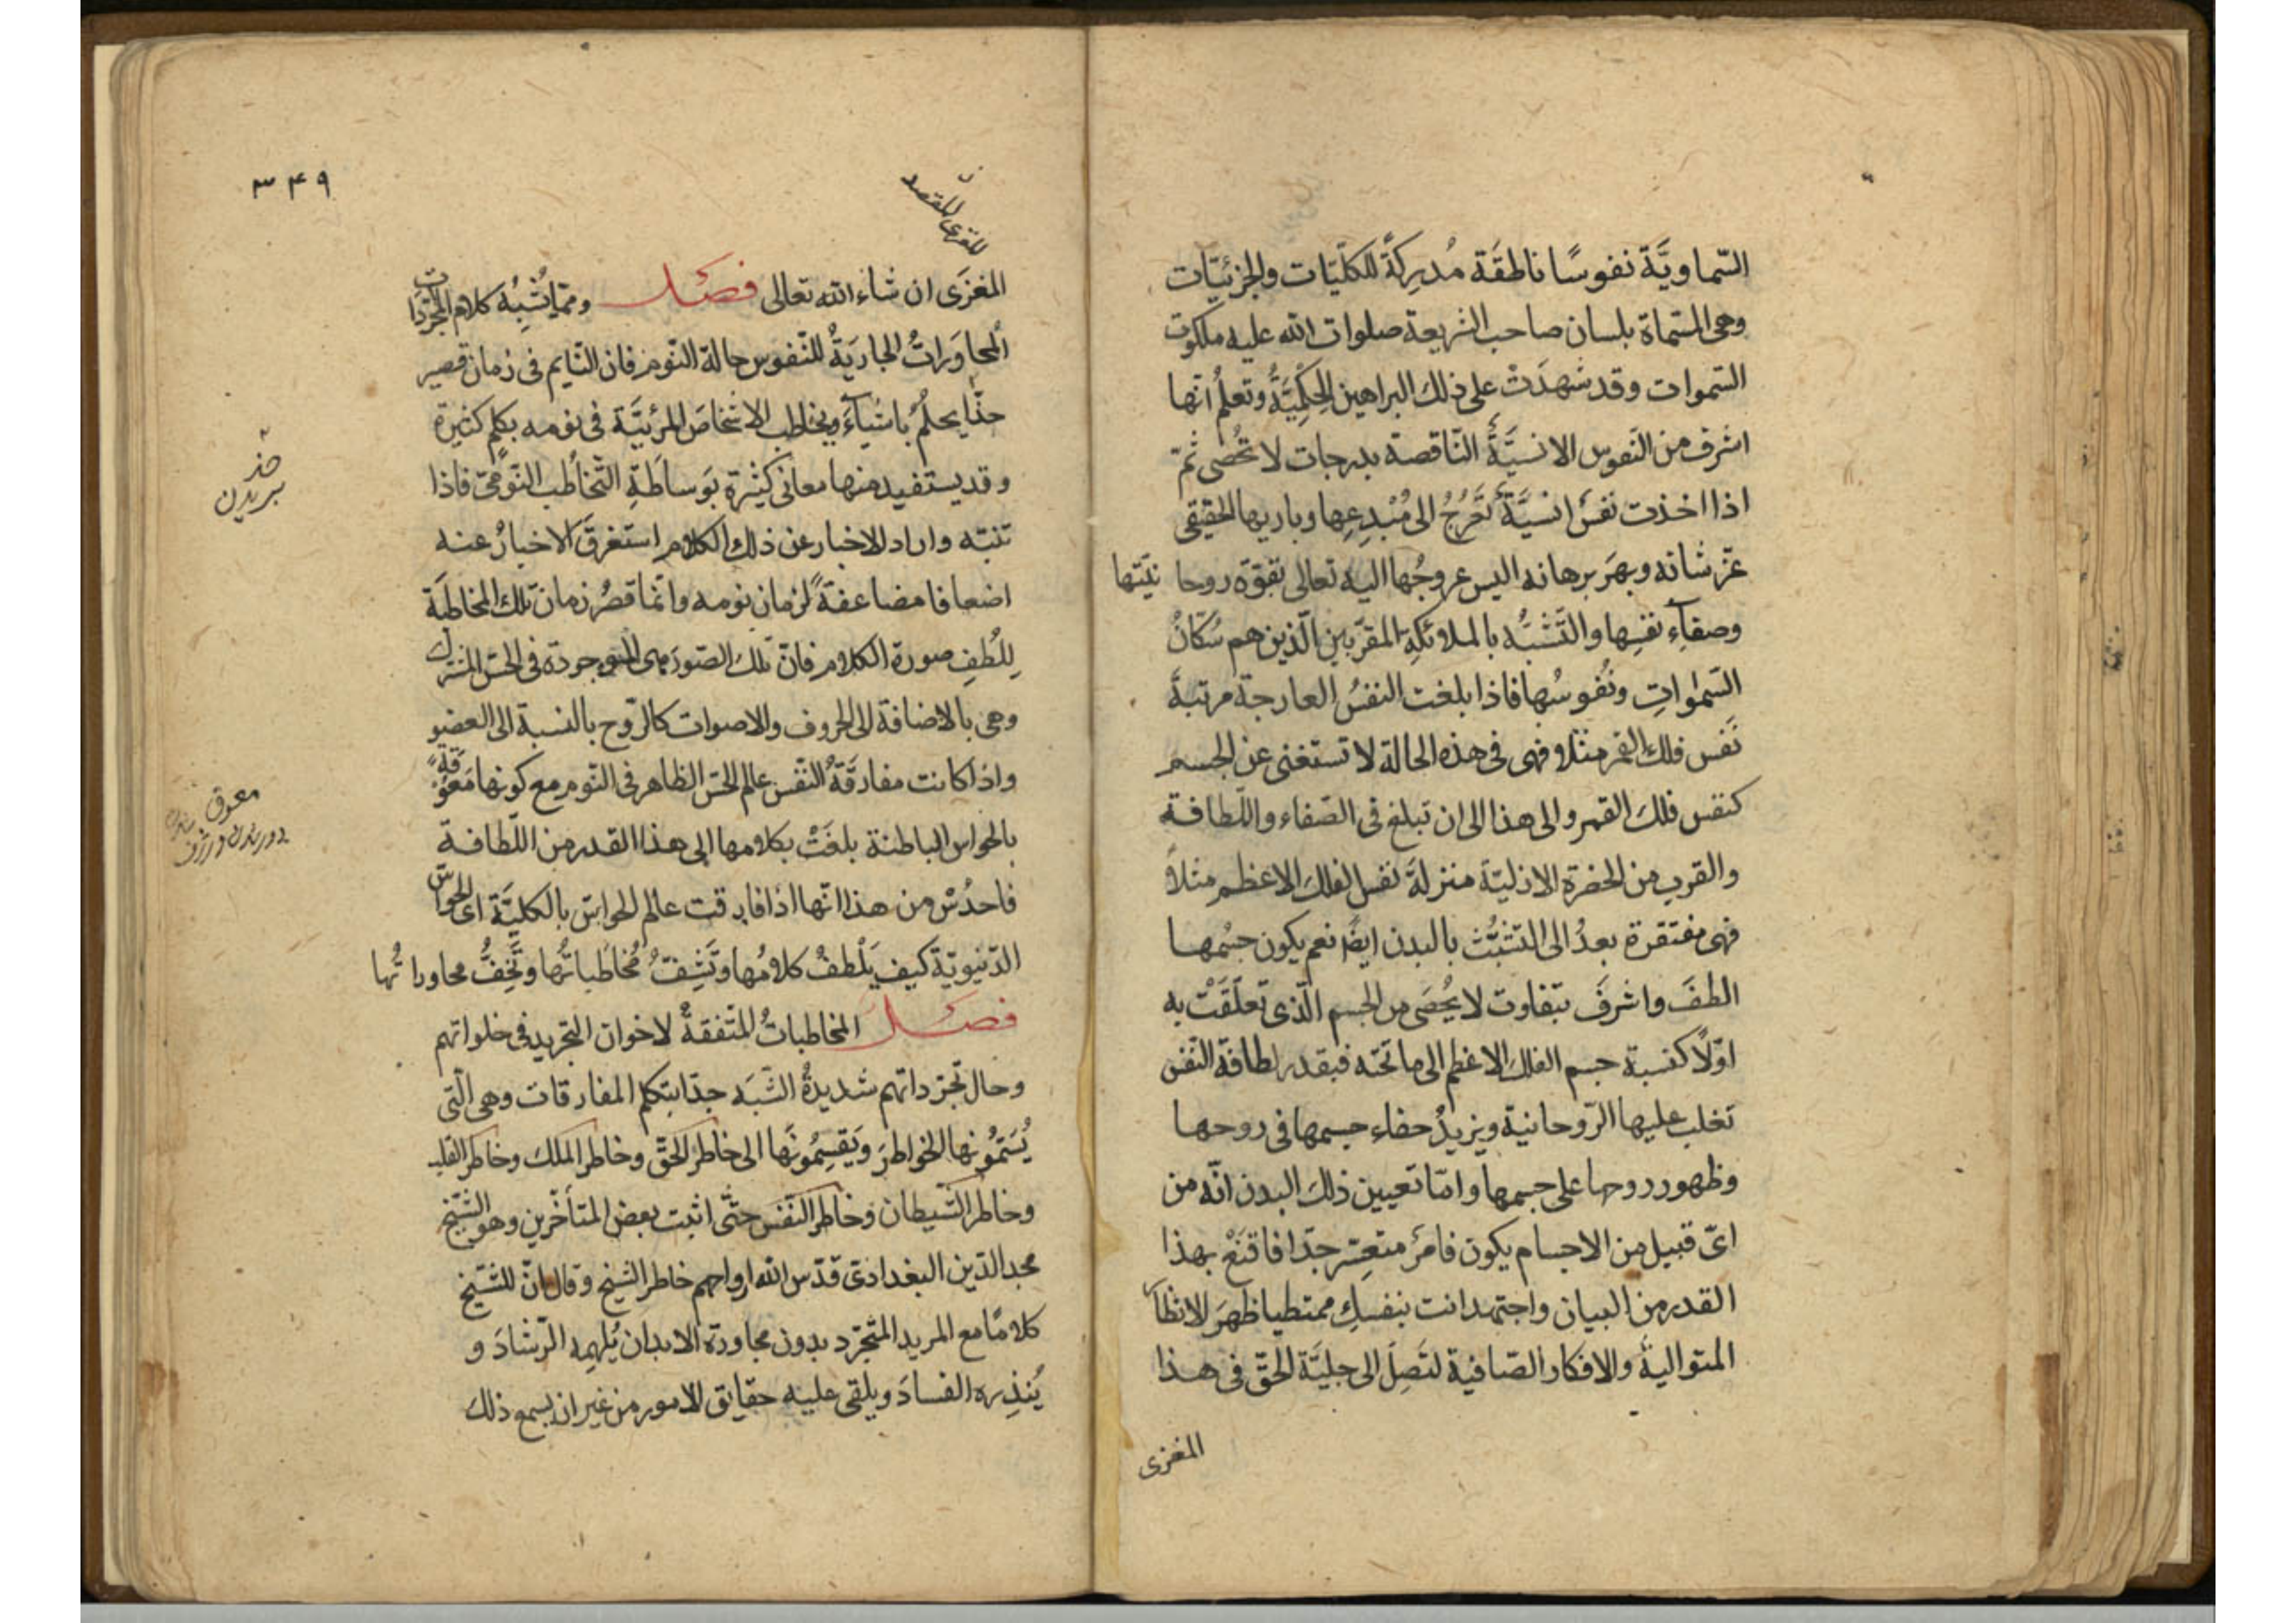 السّماويَّة نفوسًا ناطقَة مُدرِكَةً للكلّيّات والجزئيّات
وهى المسّماة بلسان صاحب الشريعة صلوات الله عليه ملكوت
السّموات وقد شهدَتْ على ذلك البراهين الحِكْمِيَّةُ وتعلمُ انّها
اشرف من النّفوس الانسيَّةِ النّاقصة بدرجات لا تُحُصى ثمّ
اذا اخذت نفسٌ انسيَّةٌ تَعَرُجُ الى مُبْدِعِها وباريها الحقيقى
عزّ شانه وبهرَ برهانه اليس عروجُها اليه تعالى بقوّة روحا نيّتها
وصفآءِ نفسِها والتّشبُّه بالملائكةِ المقرّبين الّذين هم سُكّانُ
السّمٰواتِ ونُفوسُها فاذا بلغت النفسُ العارجة مرتبةَ
نَفس فلك القمر مثلا فهى فى هذه الحالة لا تستغنى عن الجسم
كنفس فلك القمر والى هذا الى ان تبلغ فى الصّفاء واللّطافة
والقرب من الحضرة الازليّة منزلةَ نفس الفلك الاعظم مثلاً
فهى مفتقرة بعدُ الى التشبُّث بالبدن ايضًا نعم يكون جسْمها
الطفَ واشرفَ بتفاوت لا يُحُصَى من الجسم الّذى تعلّقَتْ به
اوّلاً كنسبة جسم الفلك الاعظم الى ما تحته فبقدر لطافة النّفس
تغلب عليها الرّوحانية ويزيدُ خفاء جسمها فى روحها
وظهور روحها على جسمها وامّا تعيين ذلك البدن انّه من
اىّ قبيل من الاجسام يكون فامرٌ متعسّر جدّا فاقنَعْ بهذا
القدر من البيان واجتهد انت بنفسك ممتطيا ظهرَ الانظار
المتواليةِ والافكار الصّافية لتَصِلَ الى جليَّة الحقّ فى هذا
المغزى
٣٤٩
المغزَى ان شاء الله تعالى فصل وممّا يُشْبِهُ كلام المجرّدات
المحاوَراتُ الجاريَةُ للنّفوس حالة النّوم فان النّايم فى زمان قصير
جدًّا يحلُمُ باشيآءَ ويخاطب الاشخاصَ المرئيَّة فى نومه بكلم كثيرة
وقد يستفيد منها معانى كثيرة بوَساطَةِ التّخاطُب النّومِىّ فاذا
تنبّه واراد الاخبار عن ذلك الكلام استغرقَ الاخبارُ عنه
اضعافا مضاعفةً لزمان نومه وانّما قصُر زمان تلك المخاطبة
لِلُطفِ صورة الكلام فانّ تلك الصّورَ هى الموجودة فى الحسّ المشترك
وهى بالاضافة الى الحروف والاصوات كالرّوح بالنسبة الى العضو
واذا كانت مفارقَةُ النّفس عالم الحسّ الظاهر فى النّوم مع كونها معَوَّقةً
بالحواس الباطنة بلغَتْ بكلامها الى هذا القدر من اللّطافة
فاحدُسْ من هذا انّها اذا فارقت عالم الحواسّ بالكليّة اى الحواسّ
الدّنيويّة كيف يَلْطفُ كلامُها وتَشِفُّ مُخاطباتُها وتَخِفُّ محاوراتُها
فصل المخاطباتُ المتّفقةُ لاخوان التجريد فى خلواتهم
وحال تجرّداتهم شديدةُ الشّبَه جدّا بتكلم المفارقات وهى الّتى
يُسَمُّونها الخواطرَ ويَقسِمُونَها الى خاطر الحقّ وخاطر الملك وخاطر القلب
وخاطر الشّيطان وخاطر النّفس حتّى اثبت بعض المتأخّرين وهو الشّيخ
مجد الدّين البغدادىّ قدّس الله ارواحهم خاطر الشيخ وقال انّ للشّيخ
كلامًا مع المريد المتجرّد بدون مجاورة الابدان يُلهِمه الرّشادَ و
يُنذِره الفسادَ ويلقى عليه حقايق الامور من غير ان يسمع ذلك
بريدن
معوق